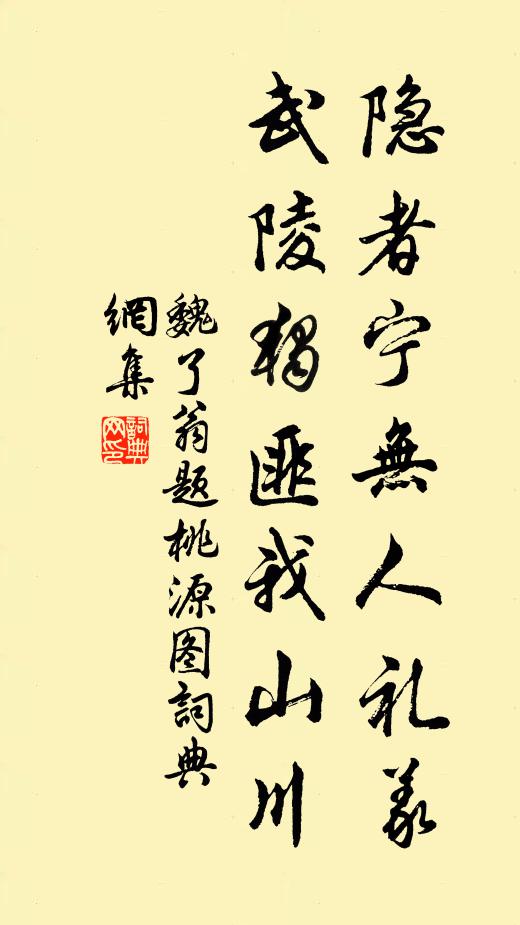 隐者宁無人礼義
武陵獨匪我山川
魏了翁题桃源图詞典
網集
詞典網印